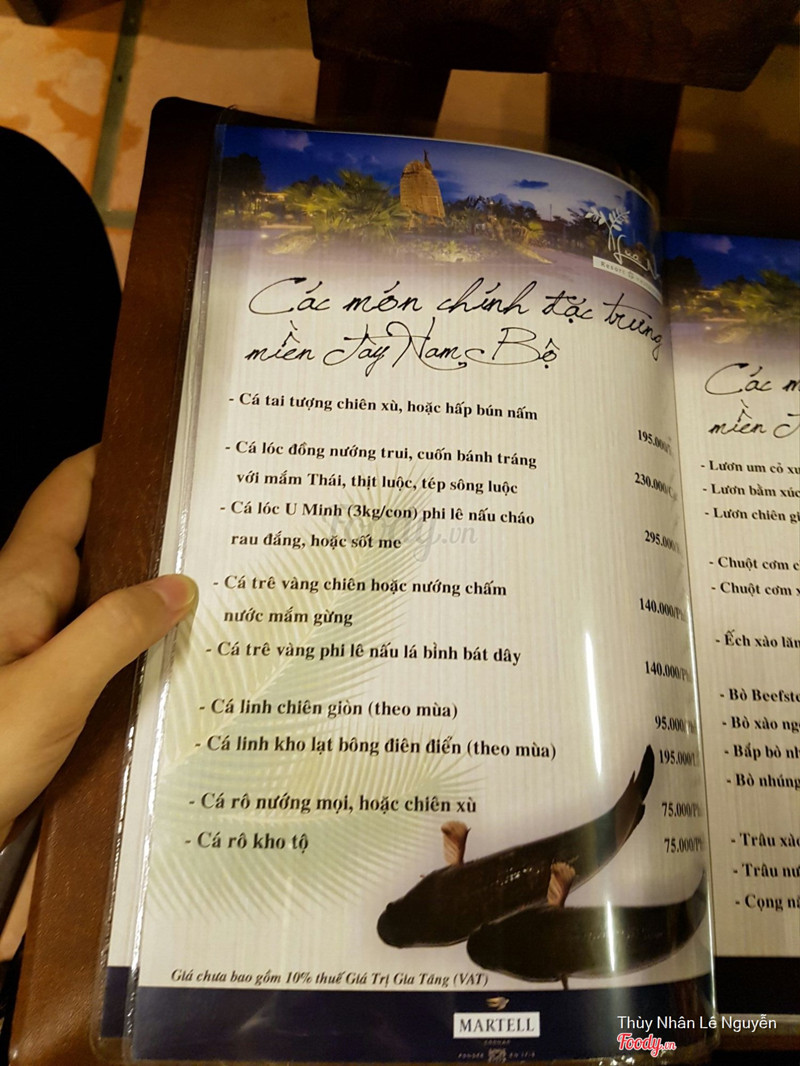 Các món chính đặc trưng
miền Tây Nam Bộ
- Cá tai tượng chiên xù, hoặc hấp bún nấm
195.000/
- Cá lóc đồng nướng trui, cuốn bánh tráng
với mắm Thái, thịt luộc, tép sông luộc
230.000/
- Cá lóc U Minh (3kg/con) phi lê nấu cháo
rau đắng, hoặc sốt me
295.000/
- Cá trê vàng chiên hoặc nướng chấm
nước mắm gừng
140.000/
- Cá trê vàng phi lê nấu lá bình bát dây
140.000/
- Cá linh chiên giòn (theo mùa)
95.000/
- Cá linh kho lạt bông điên điển (theo mùa)
195.000/
- Cá rô nướng mọi, hoặc chiên xù
75.000/
- Cá rô kho tộ
75.000/
Giá chưa bao gồm 10% thuế Giá Trị Gia Tăng (VAT)
MARTELL
COGNAC
Các
miền
- Lươn um cỏ
- Lươn bằm xúc
- Lươn chiên
- Chuột cơm
- Chuột cơm
- Ếch xào lăn
- Bò
- Bò xào
- Bắp bò
- Bò nhúng
- Trâu xào
- Trâu
- Cọng
Foody.vn
Thùy Nhân Lê Nguyễn
Foody.vn